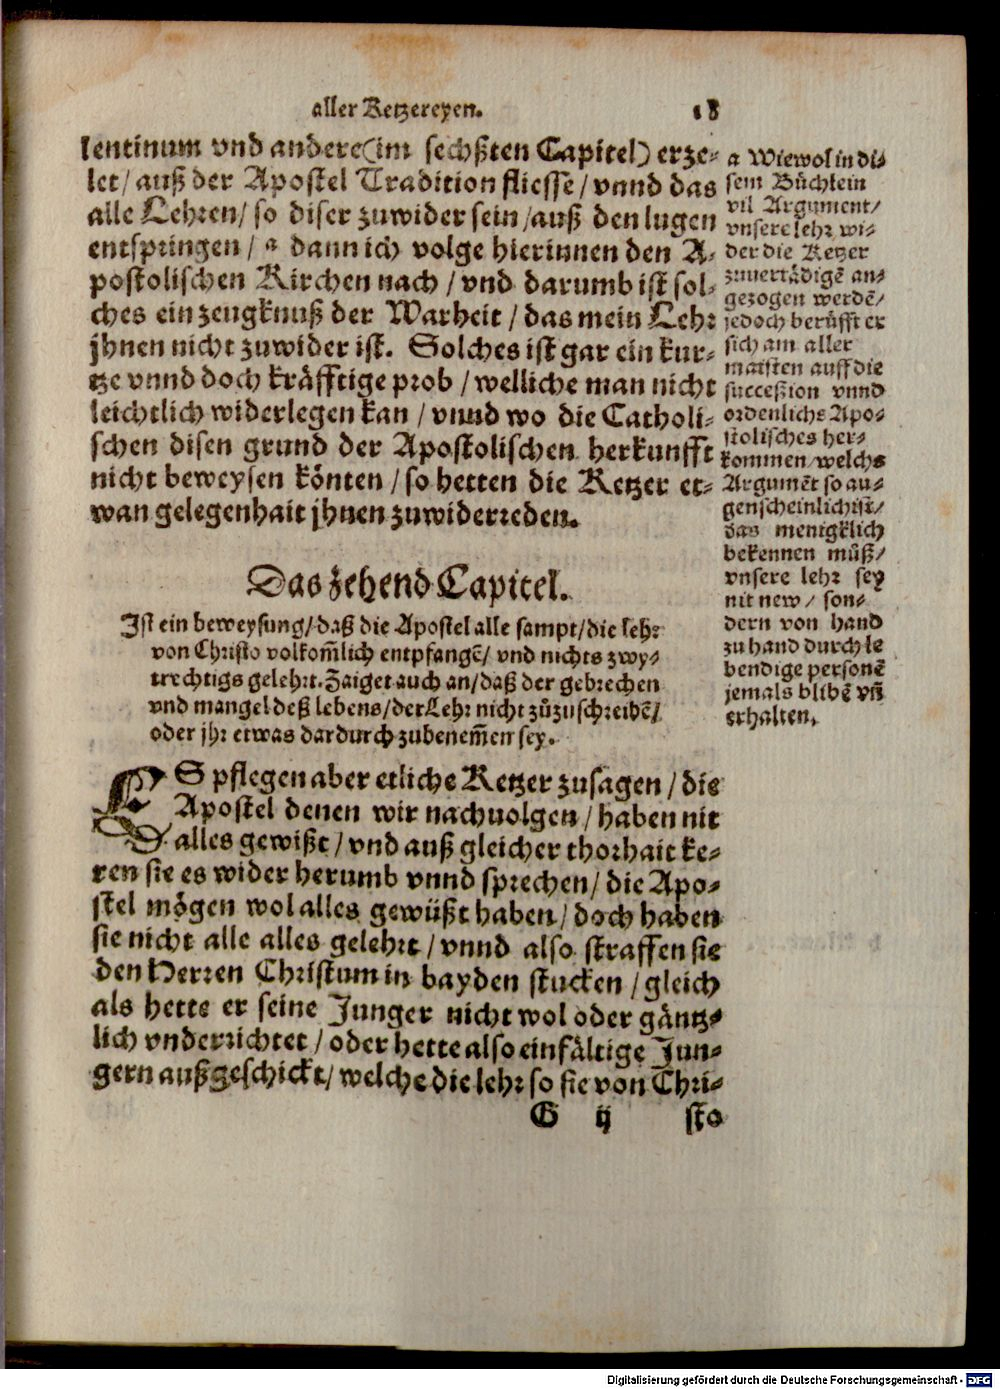 aller Ketzereyen. 18
lentinum vnd andere (im sechßten Capitel) erze-
let / auß der Apostel Tradition fliesse / vnnd das
alle Lehren / so diser zuwider sein / auß den lugen
entspringen / a dann ich volge hierinnen den A-
postolischen Kirchen nach / vnd darumb ist sol-
ches ein zeugknuß der Warheit / das mein Lehr
jhnen nicht zuwider ist. Solches ist gar ein kur-
tze vnnd doch kräfftige prob / welliche man nicht
leichtlich widerlegen kan / vnnd wo die Catholi-
schen disen grund der Apostolischen herkunfft
nicht beweysen könten / so hetten die Ketzer et-
wan gelegenhait jhnen zuwiderreden.
a Wiewol in di-
sem Büchlein
vil Argument /
vnsere lehr wi-
der die Ketzer
zuuertädigẽ an-
gezogen werdẽ /
jedoch berüfft er
sich am aller
maisten auff die
succeßion vnnd
ordenliche Apo-
stolisches her-
kommen / welchs
Argumẽt so au-
genscheinlich ist /
das menigklich
bekennen müß /
vnsere lehr sey
nit new / son-
dern von hand
zu hand durch le
bendige personẽ
jemals blibẽ vñ
erhalten.
Das zehend Capitel.
Ist ein beweysung / daß die Apostel alle sampt / die lehr
von Christo volkom̃lich entpfangẽ / vnd nichts zwy-
trechtigs gelehrt. Zaiget auch an / daß der gebrechen
vnd mangel deß lebens / der Lehr nicht zůzuschreibẽ /
oder jhr etwas dardurch zubenem̃en sey.
ES pflegen aber etliche Ketzer zusagen / die
Apostel denen wir nachuolgen / haben nit
alles gewißt / vnd auß gleicher thorhait ke-
ren sie es wider herumb vnnd sprechen / die Apo-
stel mögen wol alles gewüßt haben / doch haben
sie nicht alle alles gelehrt / vnnd also straffen sie
den Herren Christum in bayden stucken / gleich
als hette er seine Junger nicht wol oder gäntz-
lich vnderrichtet / oder hette also einfältige Jun-
gern außgeschickt / welche die lehr so sie von Chri-
G ij sto
Digitalisierung gefördert durch die Deutsche Forschungsgemeinschaft - DFG